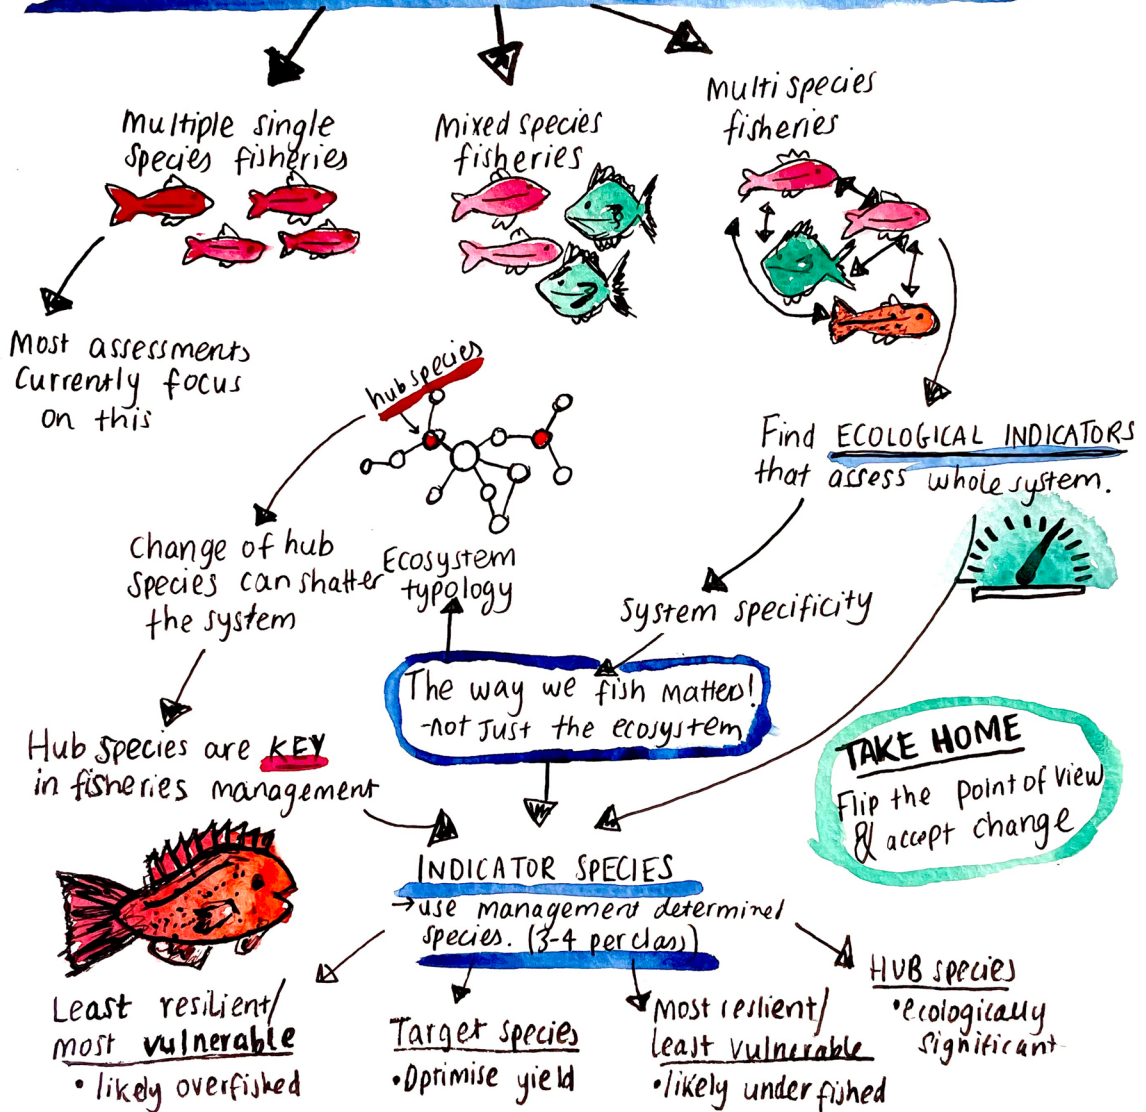 Multiple single
species fisheries
Mixed species
fisheries
Multi species
fisheries
Most assessments
currently focus
on this
hub species
Find ECOLOGICAL INDICATORS
that assess whole system.
Change of hub
species can shatter
the system
Ecosystem
typology
System specificity
The way we fish matters!
-not just the ecosystem
Hub species are KEY
in fisheries management
TAKE HOME
Flip the point of view
& accept change
INDICATOR SPECIES
→use management determined
species. (3-4 per class)
Least resilient/
most vulnerable
• likely overfished
Target species
•Optimise yield
Most reslient/
least vulnerable
•likely under fished
HUB species
•ecologically
significant